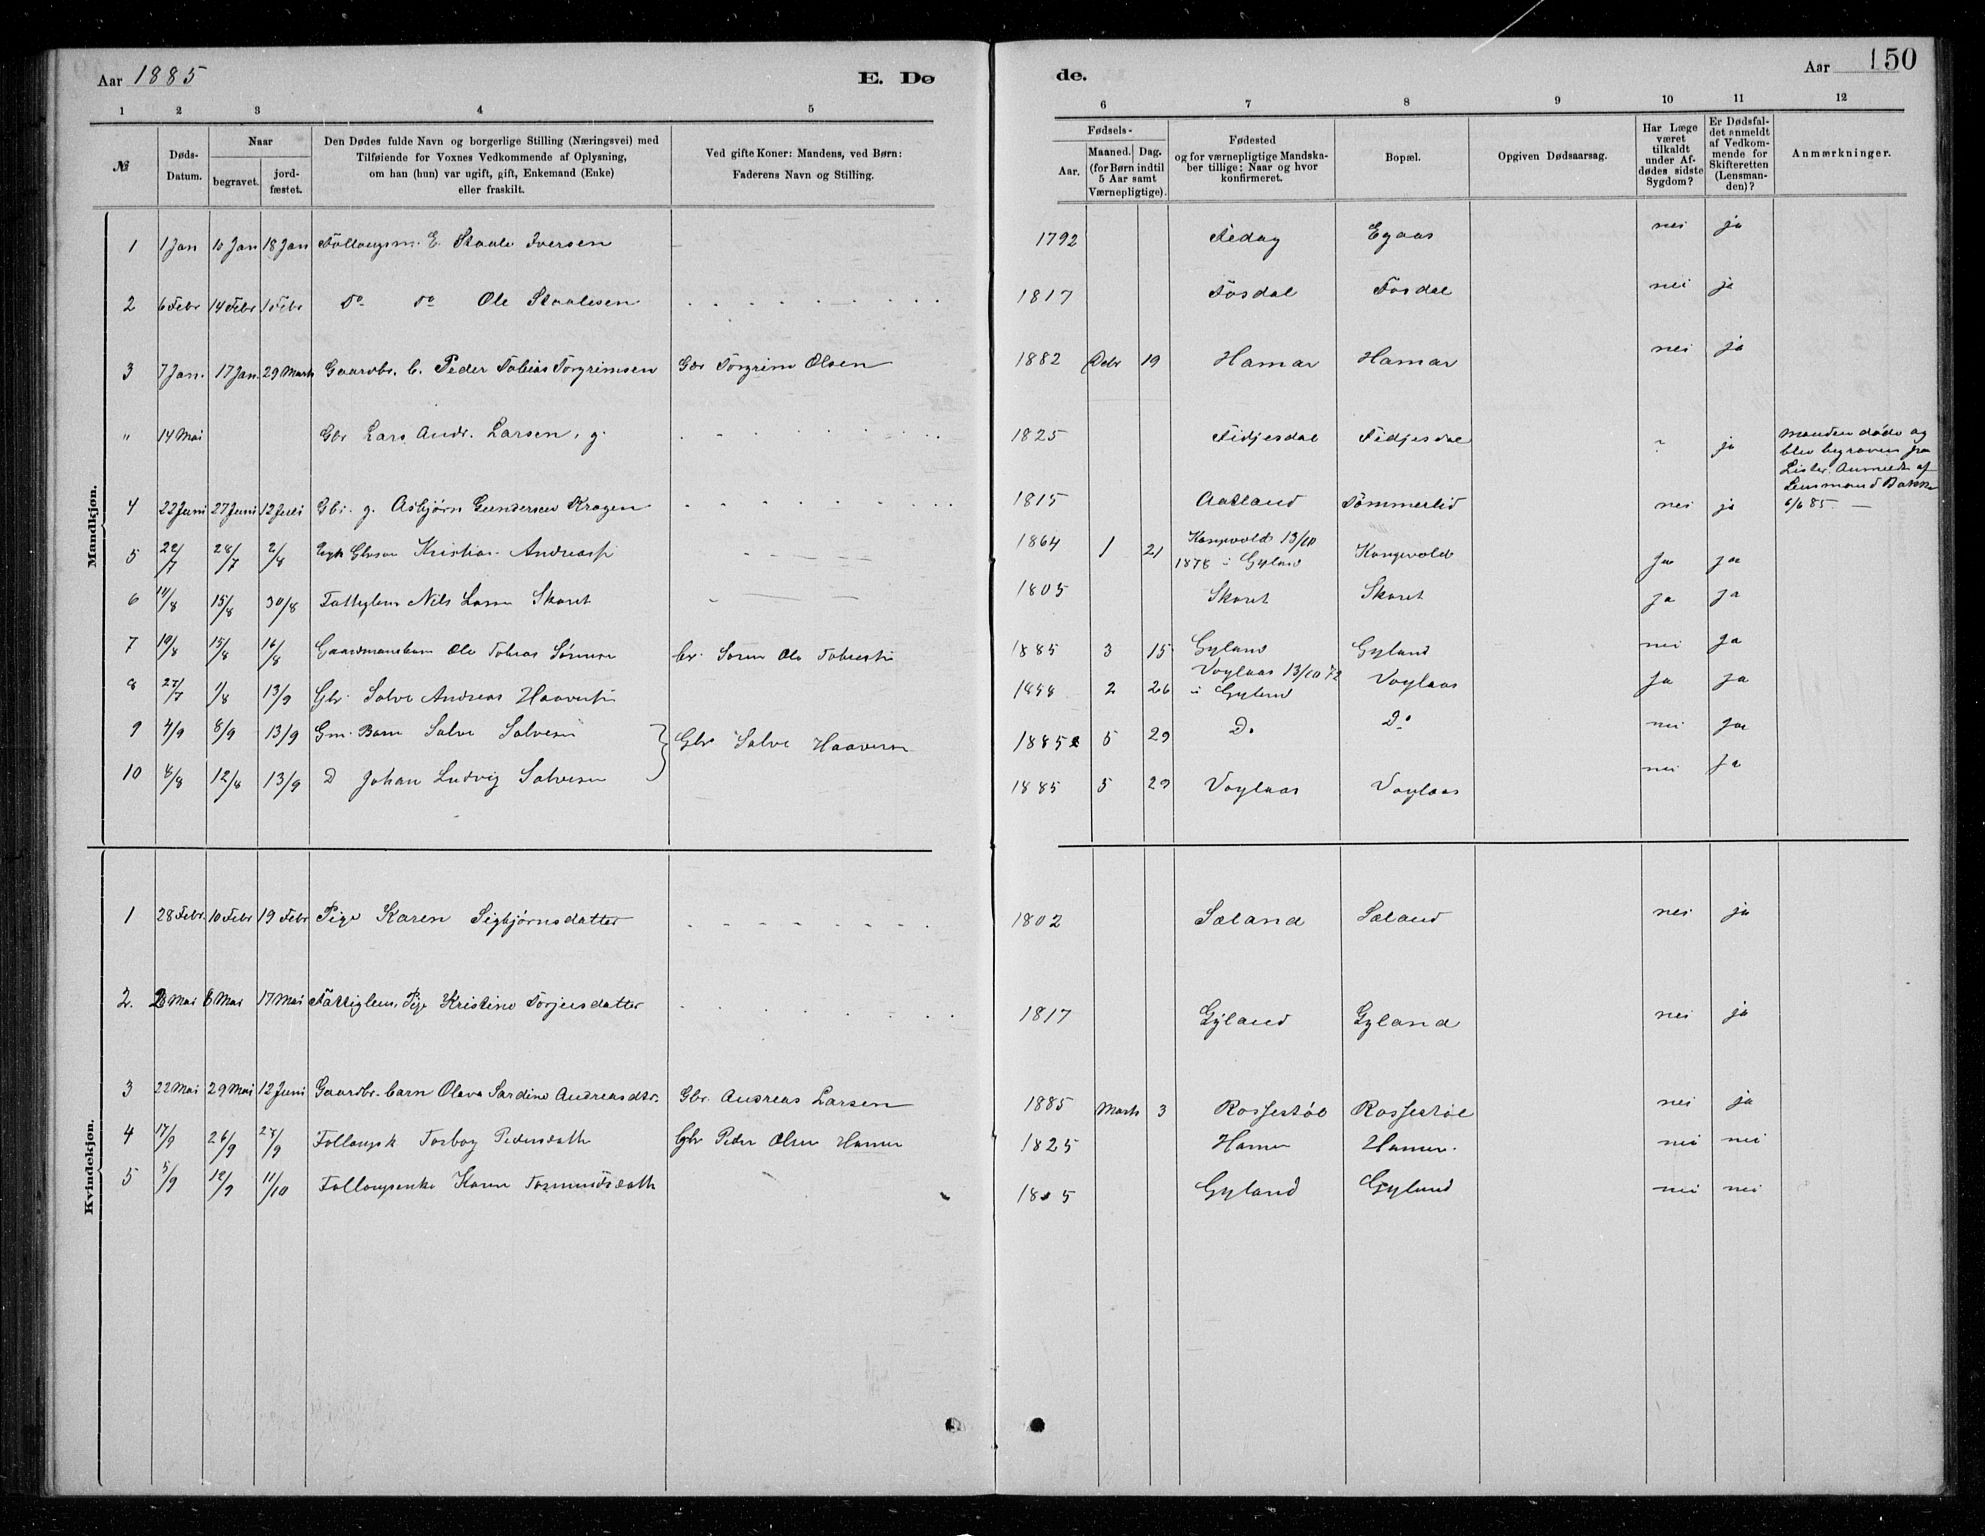 Aar 1885 E. Dø de. Aar 150
1 2 3 4 5 6 7 8 9 10 11 12
№ Døds-Datum. Naar begravet. jordfæstet. Den Dødes fulde Navn og borgerlige Stilling (Næringsvei) med Tilføiende for Voxnes Vedkommende af Oplysning, om han (hun) var ugift, gift, Enkemand (Enke) eller fraskilt. Ved gifte Koner: Mandens, ved Børn: Faderens Navn og Stilling. Fødsels- Aar. Maaned. Dag. (for Børn indtil 5 Aar samt Værnepligtige). Fødested og for værnepligtige Mandskaber tillige: Naar og hvor konfirmeret. Bopæl. Opgiven Dødsaarsag. Har Læge været tilkaldt under Afdødes sidste Sygdom? Er Dødsfaldet anmeldt af Vedkommende for Skifteretten (Lensmanden)? Anmærkninger.
Mandkjøn.
1 1 Jan 10 Jan 18 Jan Follaugsm. E. Staale Iversen 1792 Fedog Egaas nei ja
2 6 Febr 14 Febr Febr Do Do Ole Staalesen 1817 Fosdal Fosdal nei ja
3 7 Jan. 17 Jan. 29 Marts Gaardbr. b. Peder Tobias Torgrimsen Gbr Torgrim Olsen 1882 Debr 19 Hamar Hamar nei ja
" 14 Mai Gbr Lars Andr. Larsen, g. 1825 Fidjesdal Fidjesdal ? ja Manden døde og
blev begraven fra
Lister. Anmeldt af
Lensmand
6/6 85. —
4 22 Juni 27 Juni 12 Juli Gbr. g. Asbjørn Gundersen Kragen 1815 Aatland Tømmerlid nei ja
5 22/7 28/7 2/8 Kristian Andreas 1864 1 21 Kongevold 13/10
1878 i Gyland Kongevold Ja Ja
6 11/8 15/8 30/8 Fattiglem Nils Larsen Skaret 1805 Skaret Skaret Ja Ja
7 10/8 15/8 16/8 Gaardmansbarn Ole Tobias Sørensen Gbr. Søren Ole 1885 3 15 Gyland Gyland nei Ja
8 27/7 1/8 13/9 Gbr. Salve Andreas 2 26 Voglaas 13/10 72
i Gyland Voglaas Ja Ja
9 4/9 8/9 13/9 Gm. Barn Salve Salvesen Gbr Salve Haaversen 1885 5 29 Do Do nei Ja
10 8/8 12/8 13/9 D Johan Ludvig Salvesen 1885 5 29 Voglaas Voglaas nei Ja
Kvindekjøn.
1 28 Febr. 10 Febr 19 Febr Pige Karen Sigbjørnsdatter 1802 Sæland Sæland nei ja
2. Mai 8 Mai 17 Mai Fattiglem, Pige Kristine Torjusdatter 1817 Gyland Gyland nei ja
3 22 Mai 29 Mai 12 Juni Gaardbr. barn Olava Sardine Andreasdtr. Gbr. Andreas Larsen 1885 Marts 3 Rossestøl Rossestøl nei ja
4 17/9 26/9 27/9 Follaugsk Torborg Pedersdatt Gbr Peder Olsen Hamer 1825 Hamer Hamer. nei nei
5 5/9 12/9 11/10 Follaugsenke Karen Tormundsdatt Gyland Gyland nei nei